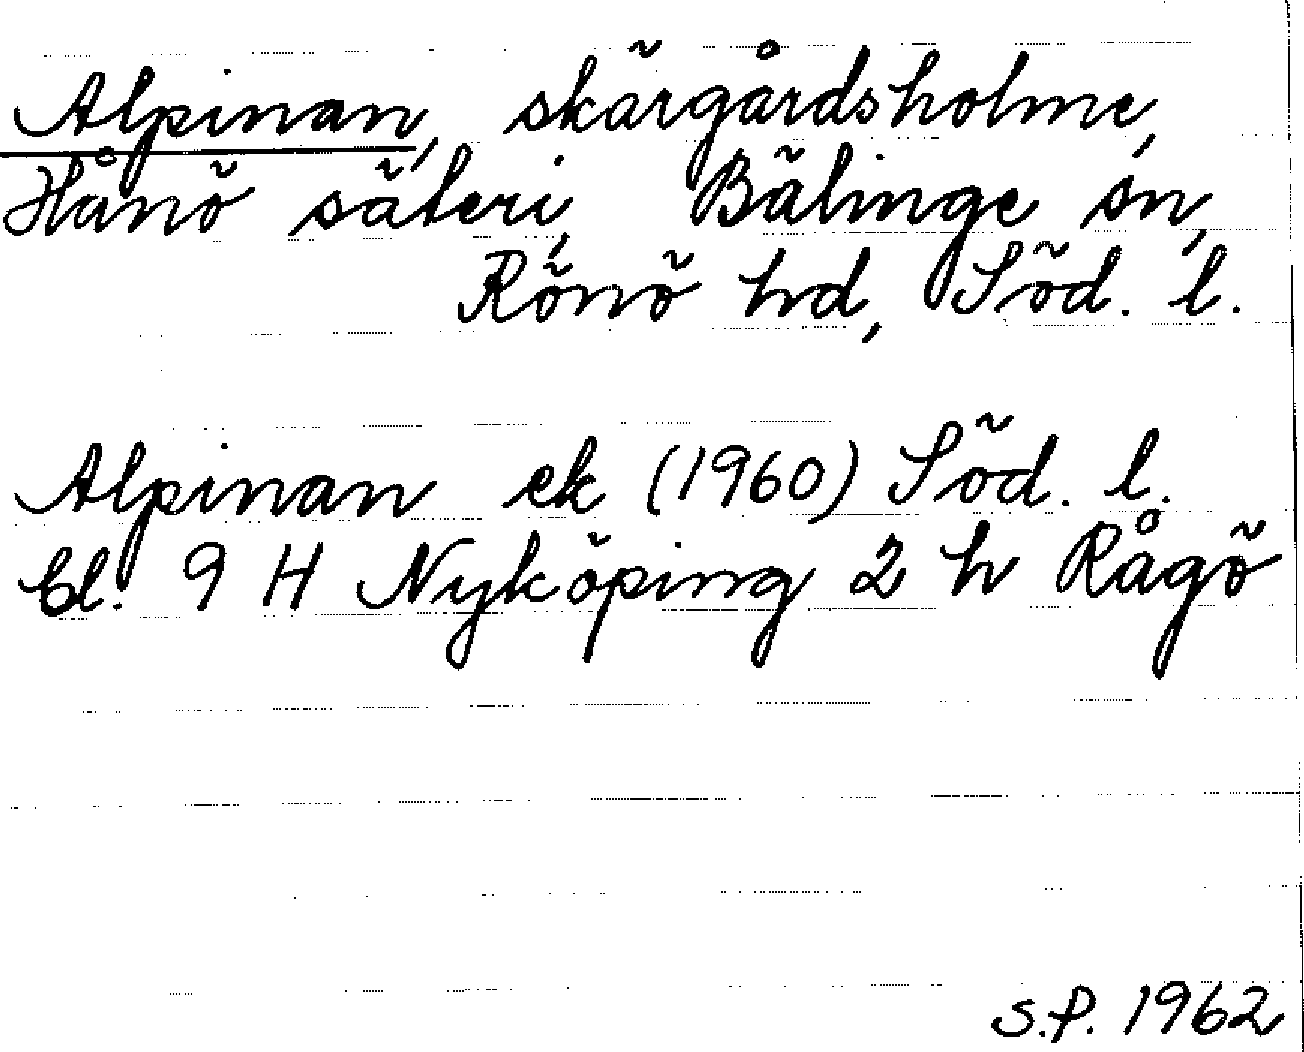 Alpinan, skärgårdsholme,
Hånö säteri, Bälinge sn,
Rönö hd, Söd. l.
Alpinan ek (1960) Söd. l.
bl. 9 H Nyköping 2 h Rågö
S.P. 1962